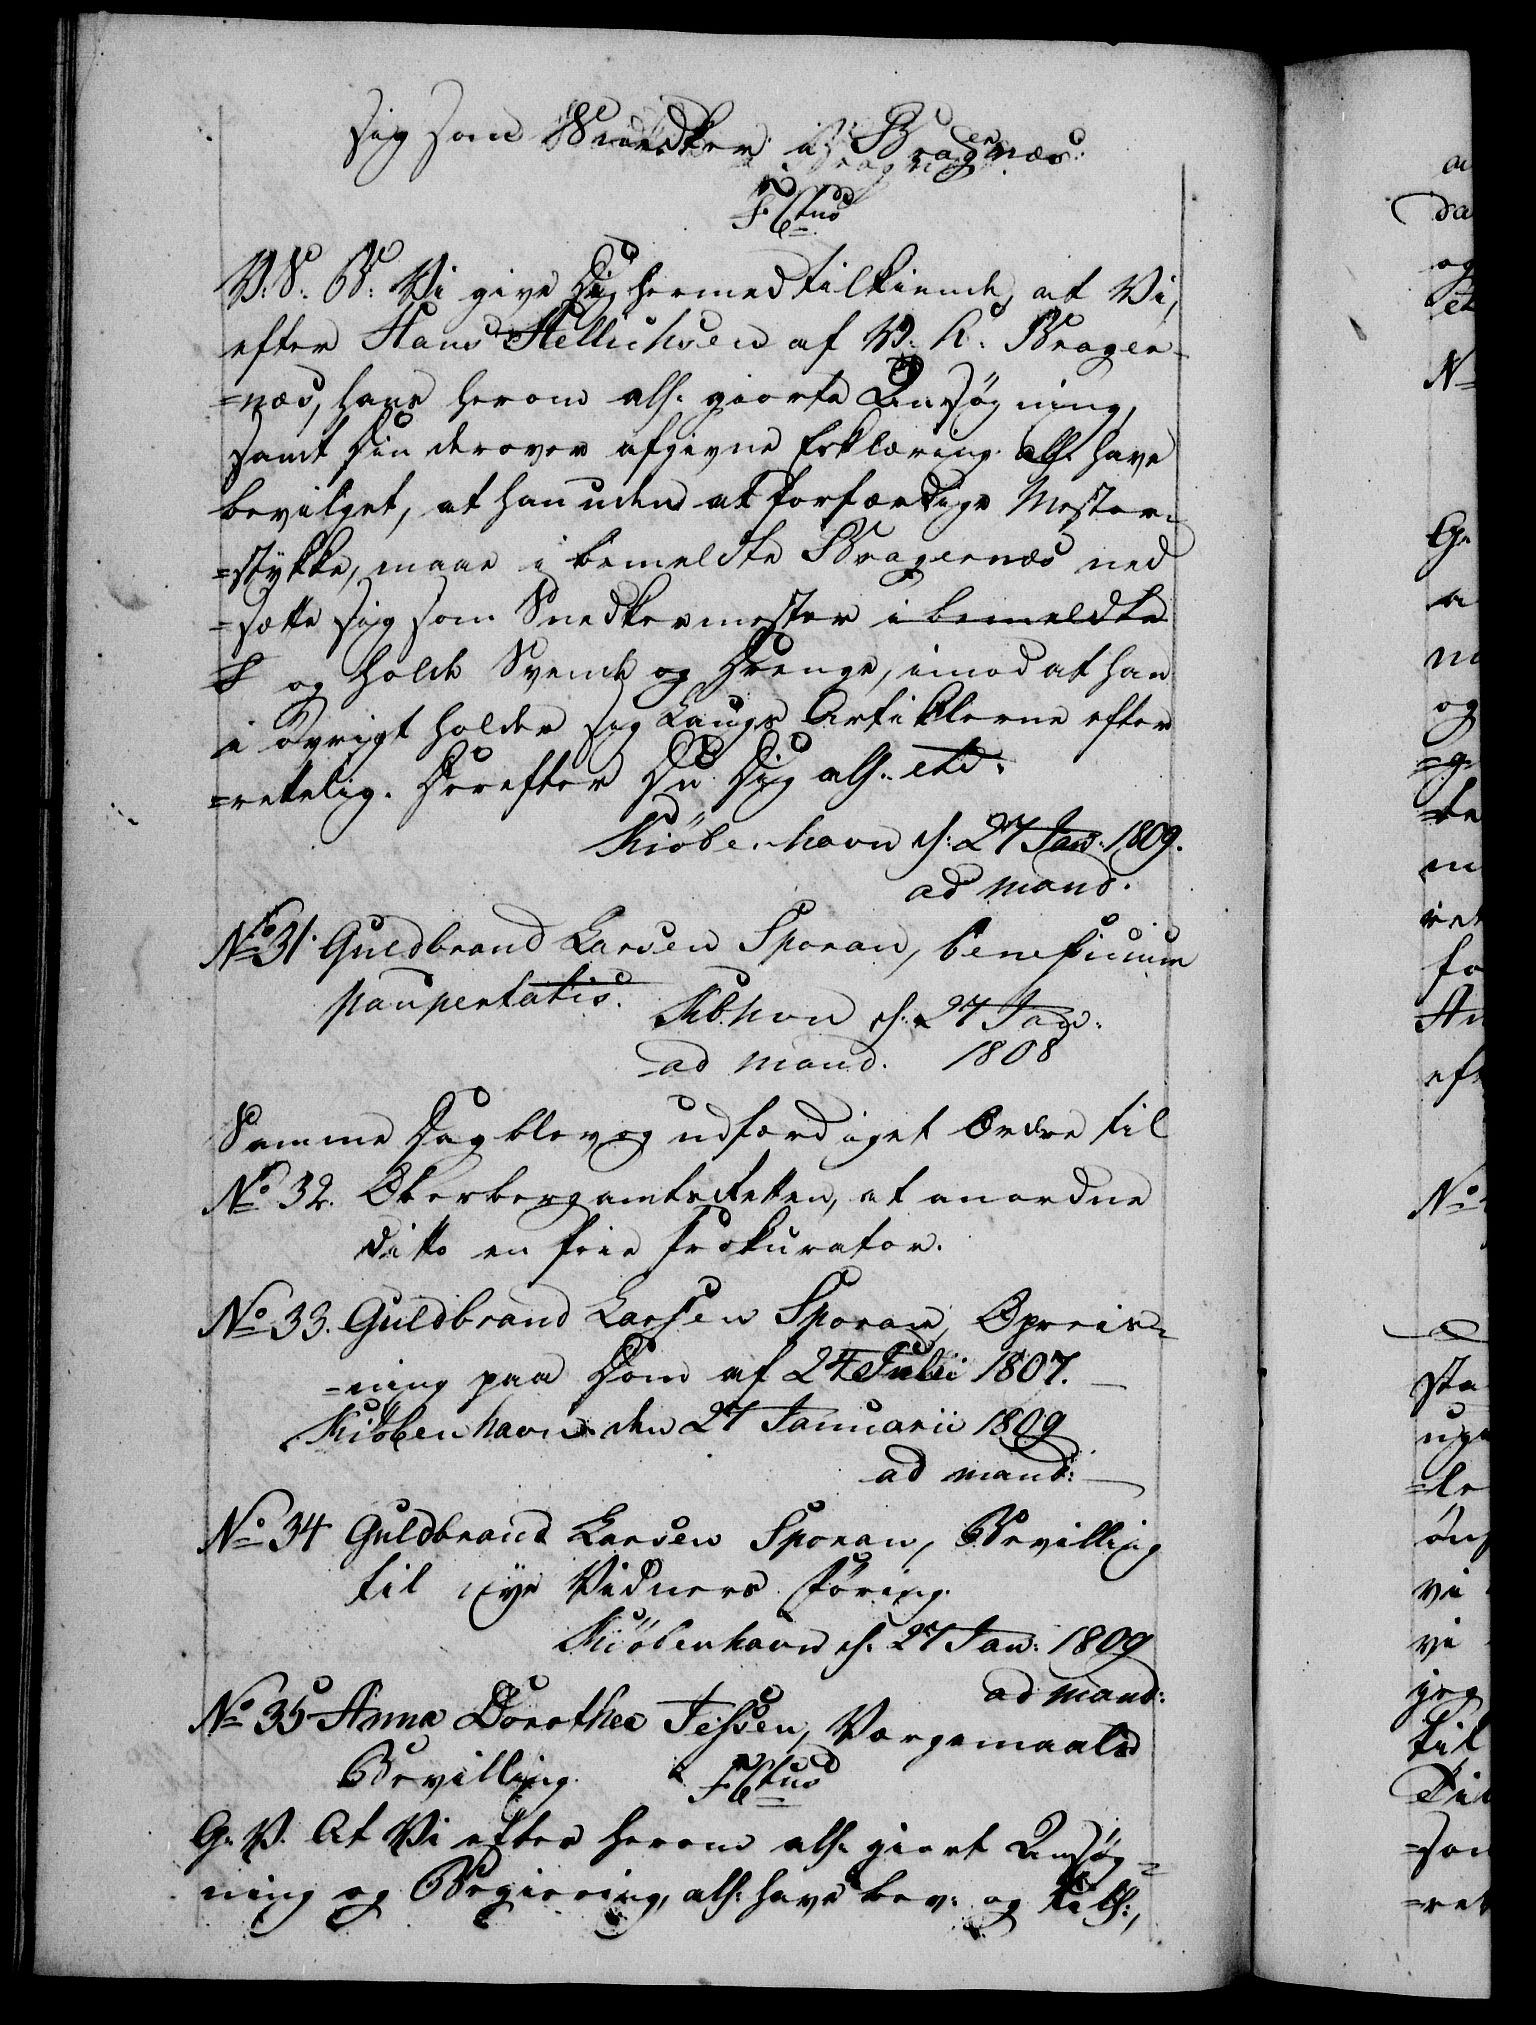 sig som Snedker i Bragernæs.
F. Ctus
V. S. G: Vi give Dig hermed tilkiende, at Vi,
efter Hans Hellichsen af V. K. Brager-
=næs, hans herom alh. giorte Ansøgning,
samt Din derover afgivne Erklæring alh. have
bevilget, at han uden at forfærdige Mester-
=stykke, maae i bemeldte Bragernæs ned
=sætte sig som Snedkermester i bemeldte
og holde Svende og Drenge, imod at han
i øvrigt holder sig Laugs Artiklerne efter
=rettelig. Derefter Du Dig alh. etc.
Kiöbenhavn d: 27 Jan: 1809.
ad mand.
No 31. Guldbrand Larsen Sporan, beneficium
paupertatis. Kbhvn d: 27 Jan:
ad mand. 1808
Samme Dag blev og udfærdiget Ordre til
No 32. Oberbergamtsretten, at anordne
ditto en frie Prokurator.
No 33. Guldbrand Larsen Sporan, Opreis-
=ning paa Dom af 24 Julii 1807.
Kiöbenhavn den 27 Januarii 1809
ad mand:
No 34 Guldbrand Larsen Sporan, Bevilling
til nye Vidners Föring.
Kiöbenhavn d. 27 Jan: 1809
ad mand:
No 35 Anna Dorothea Jessen, Værgemaals
Bevilling. F. Ctus
G. V. At Vi efter herom alh. giort Ansøg-
ning og Begiering, alh: have bev: og till:,